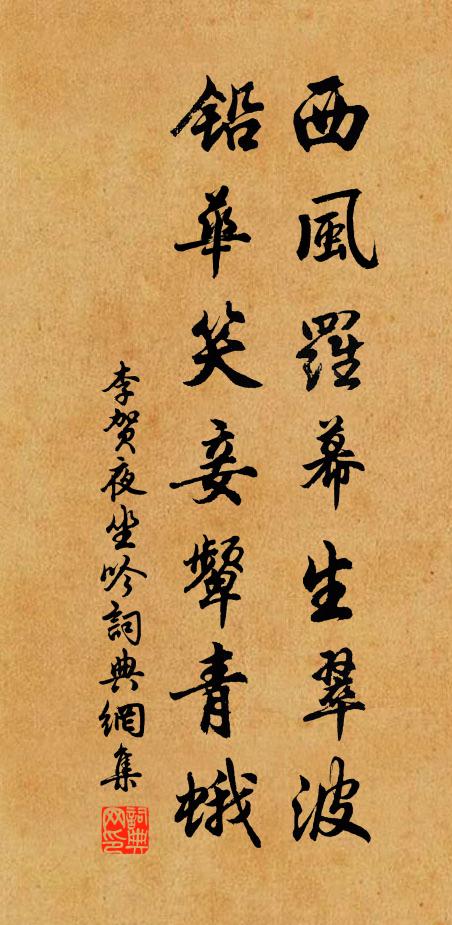 西風羅幕生翠波
鉛華笑妾顰青蛾
李賀夜坐吟詞典網集
詞典網印